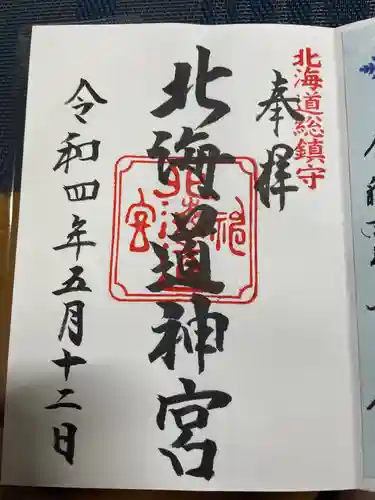 北海道総鎮守
奉拝
北海道神宮
令和四年五月十二日